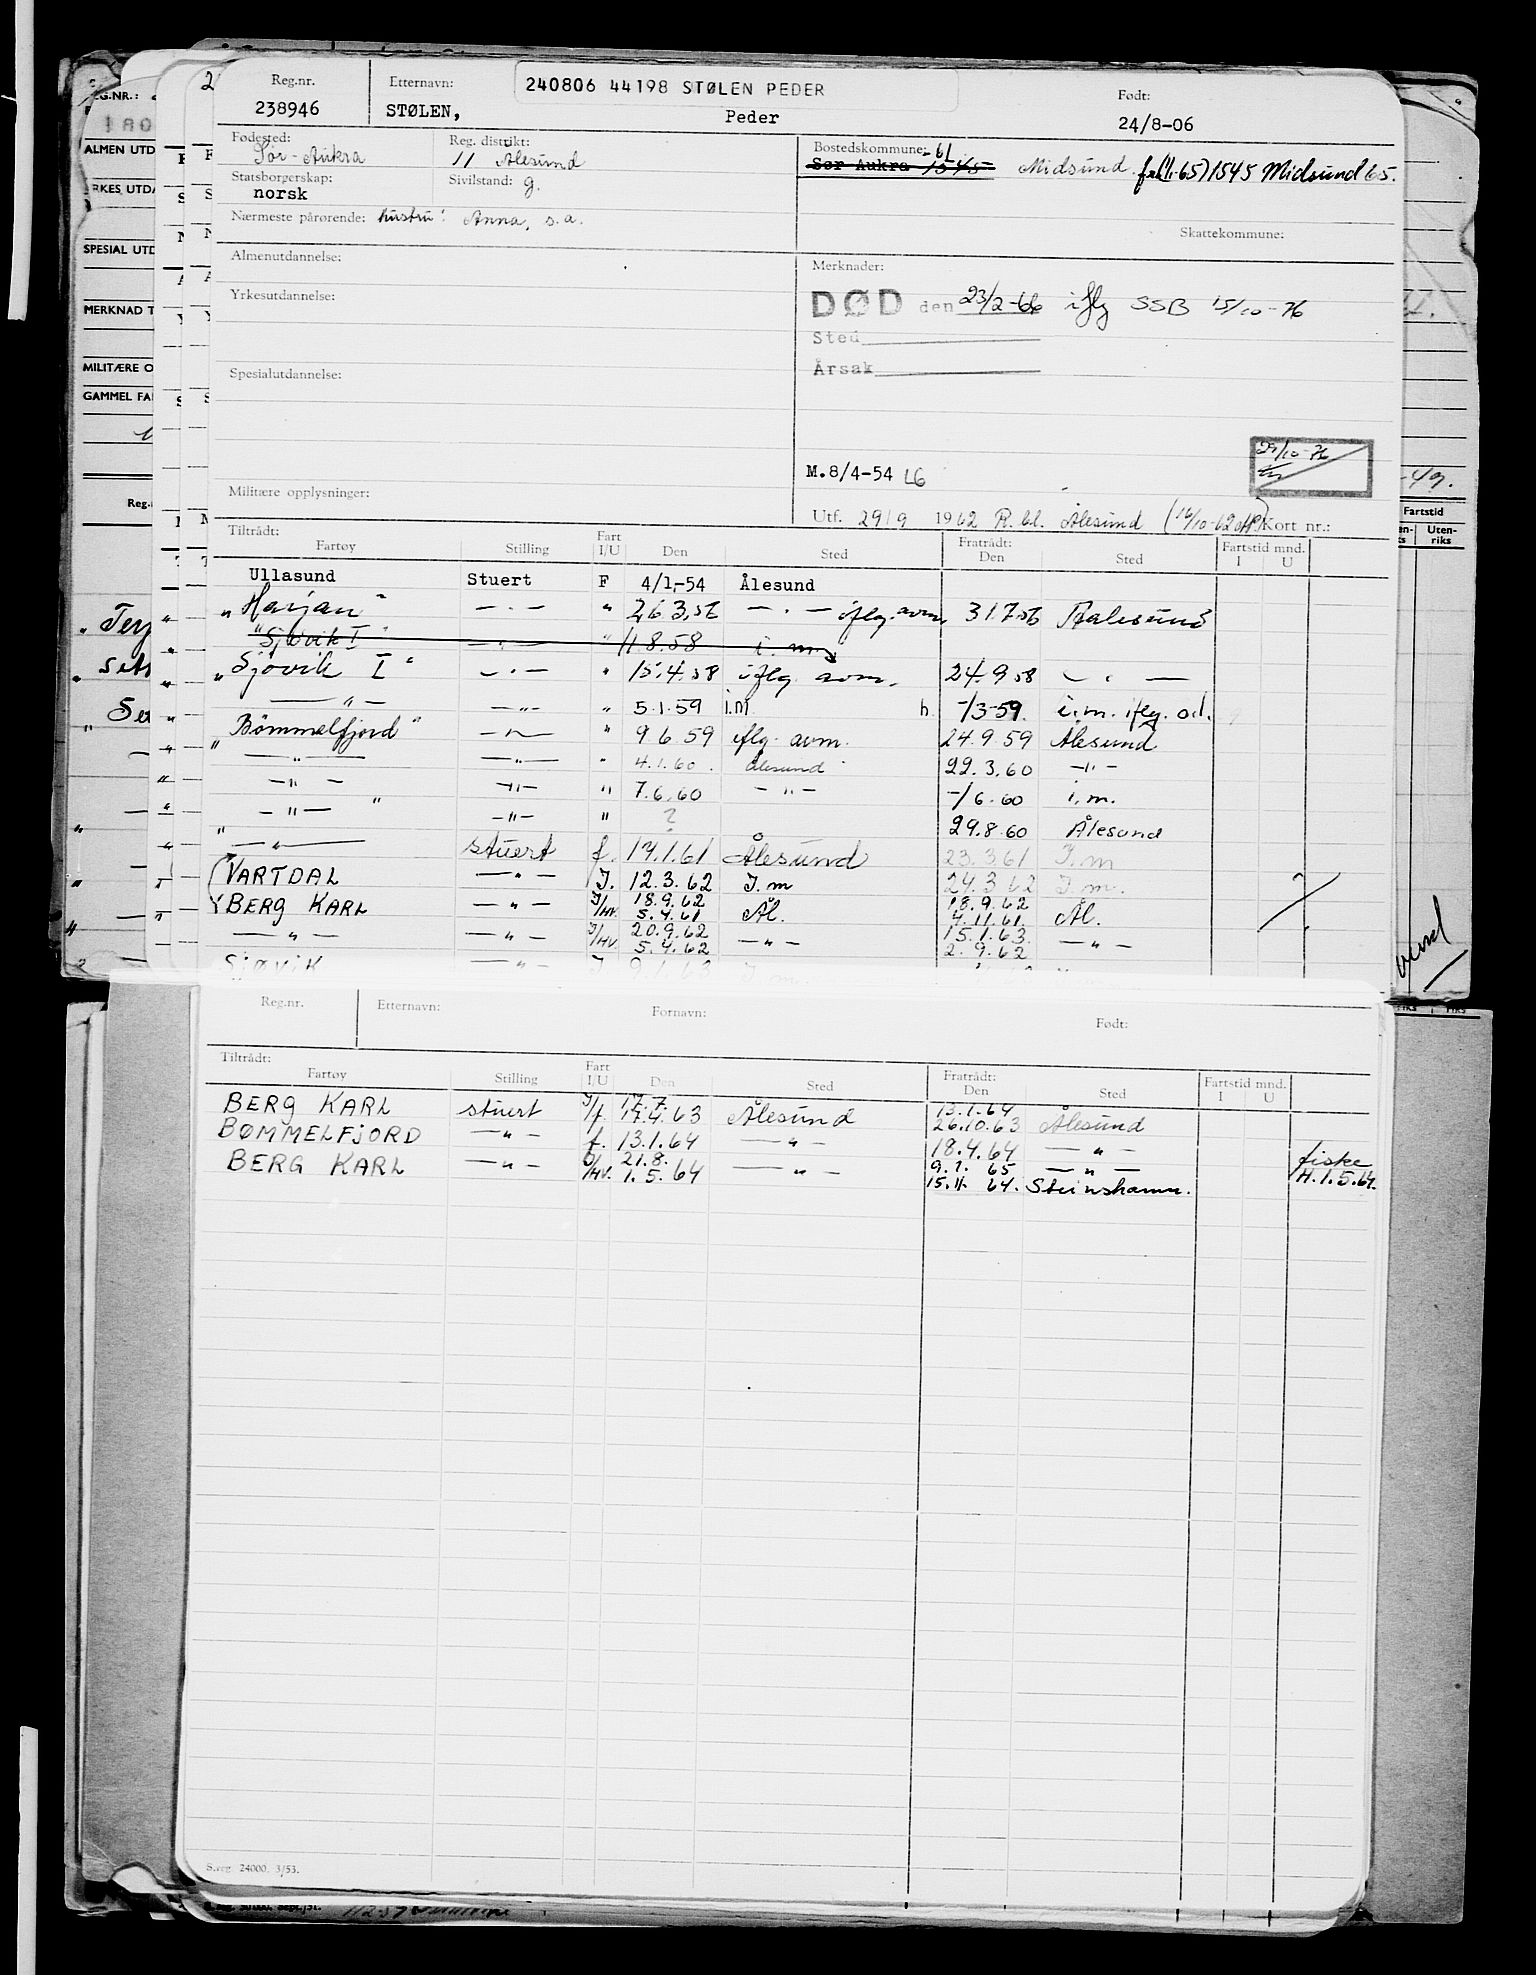 Reg.nr. Etternavn: 240806 44198 STØLEN PEDER Født:
238946 STØLEN, Peder 24/8-06
Fødested: Sør-Aukra Reg. distrikt: 11 Ålesund Bostedskommune: -61
Sør Aukra 1545 Midsund fra(1/1-65) 1545 Midsund 65.
Statsborgerskap: norsk Sivilstand: g.
Nærmeste pårørende: hustru: Anna, s.a.
Skattekommune:
Almenutdannelse: Merknader:
Yrkesutdannelse: DØD den 23/2-66 iflg SSB 15/10-76
Sted
Årsak
Spesialutdannelse:
29/10-76
M.8/4-54 LG
Militære opplysninger:
Utf. 29/9 1962 R.bl. Ålesund (16/10-62 Kort nr.:
Tiltrådt: Fart Fratrådt: Fartstid mnd.
Fartøy Stilling I/U Den Sted Den Sted I U
Ullasund Stuert F 4/1-54 Ålesund
"Harjan" — " — " 26.3.56 — " — iflg. avm. 31.7.56 Aalesund
"Sjøvik I" — " — " 11.8.58 i. m.
"Sjövik I" — " — " 15.4.58 iflg. avm. 24.9.58 — " —
— " — — " — " 5.1.59 i.m. h. -/3-59. i.m. iflg. od.
"Bömmelfjord" — " — " 9.6.59 iflg. avm. 24.9.59 Ålesund
— " — — " — " 4.1.60. Ålesund 22.3.60 — " —
— " — — " — " 7.6.60 — " — -/6.60 i.m.
— " — — " — " ? 29.8.60 Ålesund
— " — stuert f. 17.1.61 Ålesund 23.3.61 I.m
VARTDAL — " — I. 12.3.62 I.m 24.3.62 I.m. ?
BERG KARL — " — I/HV. 18.9.62 5.4.61 Ål. 18.9.62 4.11.61 Ål.
— " — — " — I/HV. 20.9.62 5.4.62 — " — 15.1.63. 2.9.62 — " —
SJØVIK — " — I 9.1.63 I m
Reg.nr. Etternavn: Fornavn: Født:
Tiltrådt: Fart Fratrådt: Fartstid mnd.
Fartøy Stilling I/U Den Sted Den Sted I U
BERG KARL stuert I/f. 17.7. 17.4.63 Ålesund 13.1.64 26.10.63 Ålesund
BØMMELFJORD — " — f. 13.1.64 — " — 18.4.64 — " —
BERG KARL — " — I/HV. 21.8. 1.5.64 — " — 9.1.65 — " — fiske
15.11.64. Steinshamn. H.1.5.64.
S.reg. 24000. 3/53.
EG.NR.:
ALMEN UTD
RKES. UTDA
SPESIAL UTD
MERKNAD T
MILITÆRE O
GAMMEL FA
Reg.
-49.
Fartstid
Uten-
riks